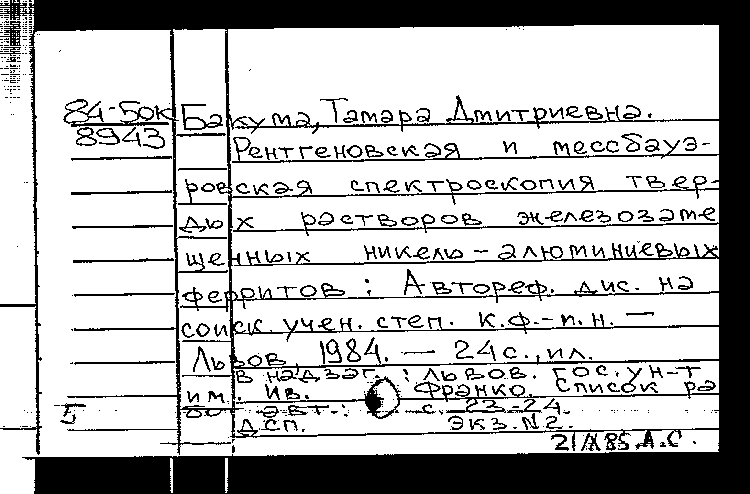 84-5ок
8943
Бакума, Тамара Дмитриевна.
Рентгеновская и мессбауэ-
ровская спектроскопия твер-
дых растворов железозаме
щенных никель-алюминиевых
ферритов : Автореф. дис. на
соиск. учен. степ. к.ф.-м.н. —
Львов, 1984. — 24 с., ил.
В надзаг. : Львов. гос. ун-т
им. Ив. Франко. Список ра
бот авт.: с. 23-24.
ДСП. экз. N2.
5
21/X 85. А.С.